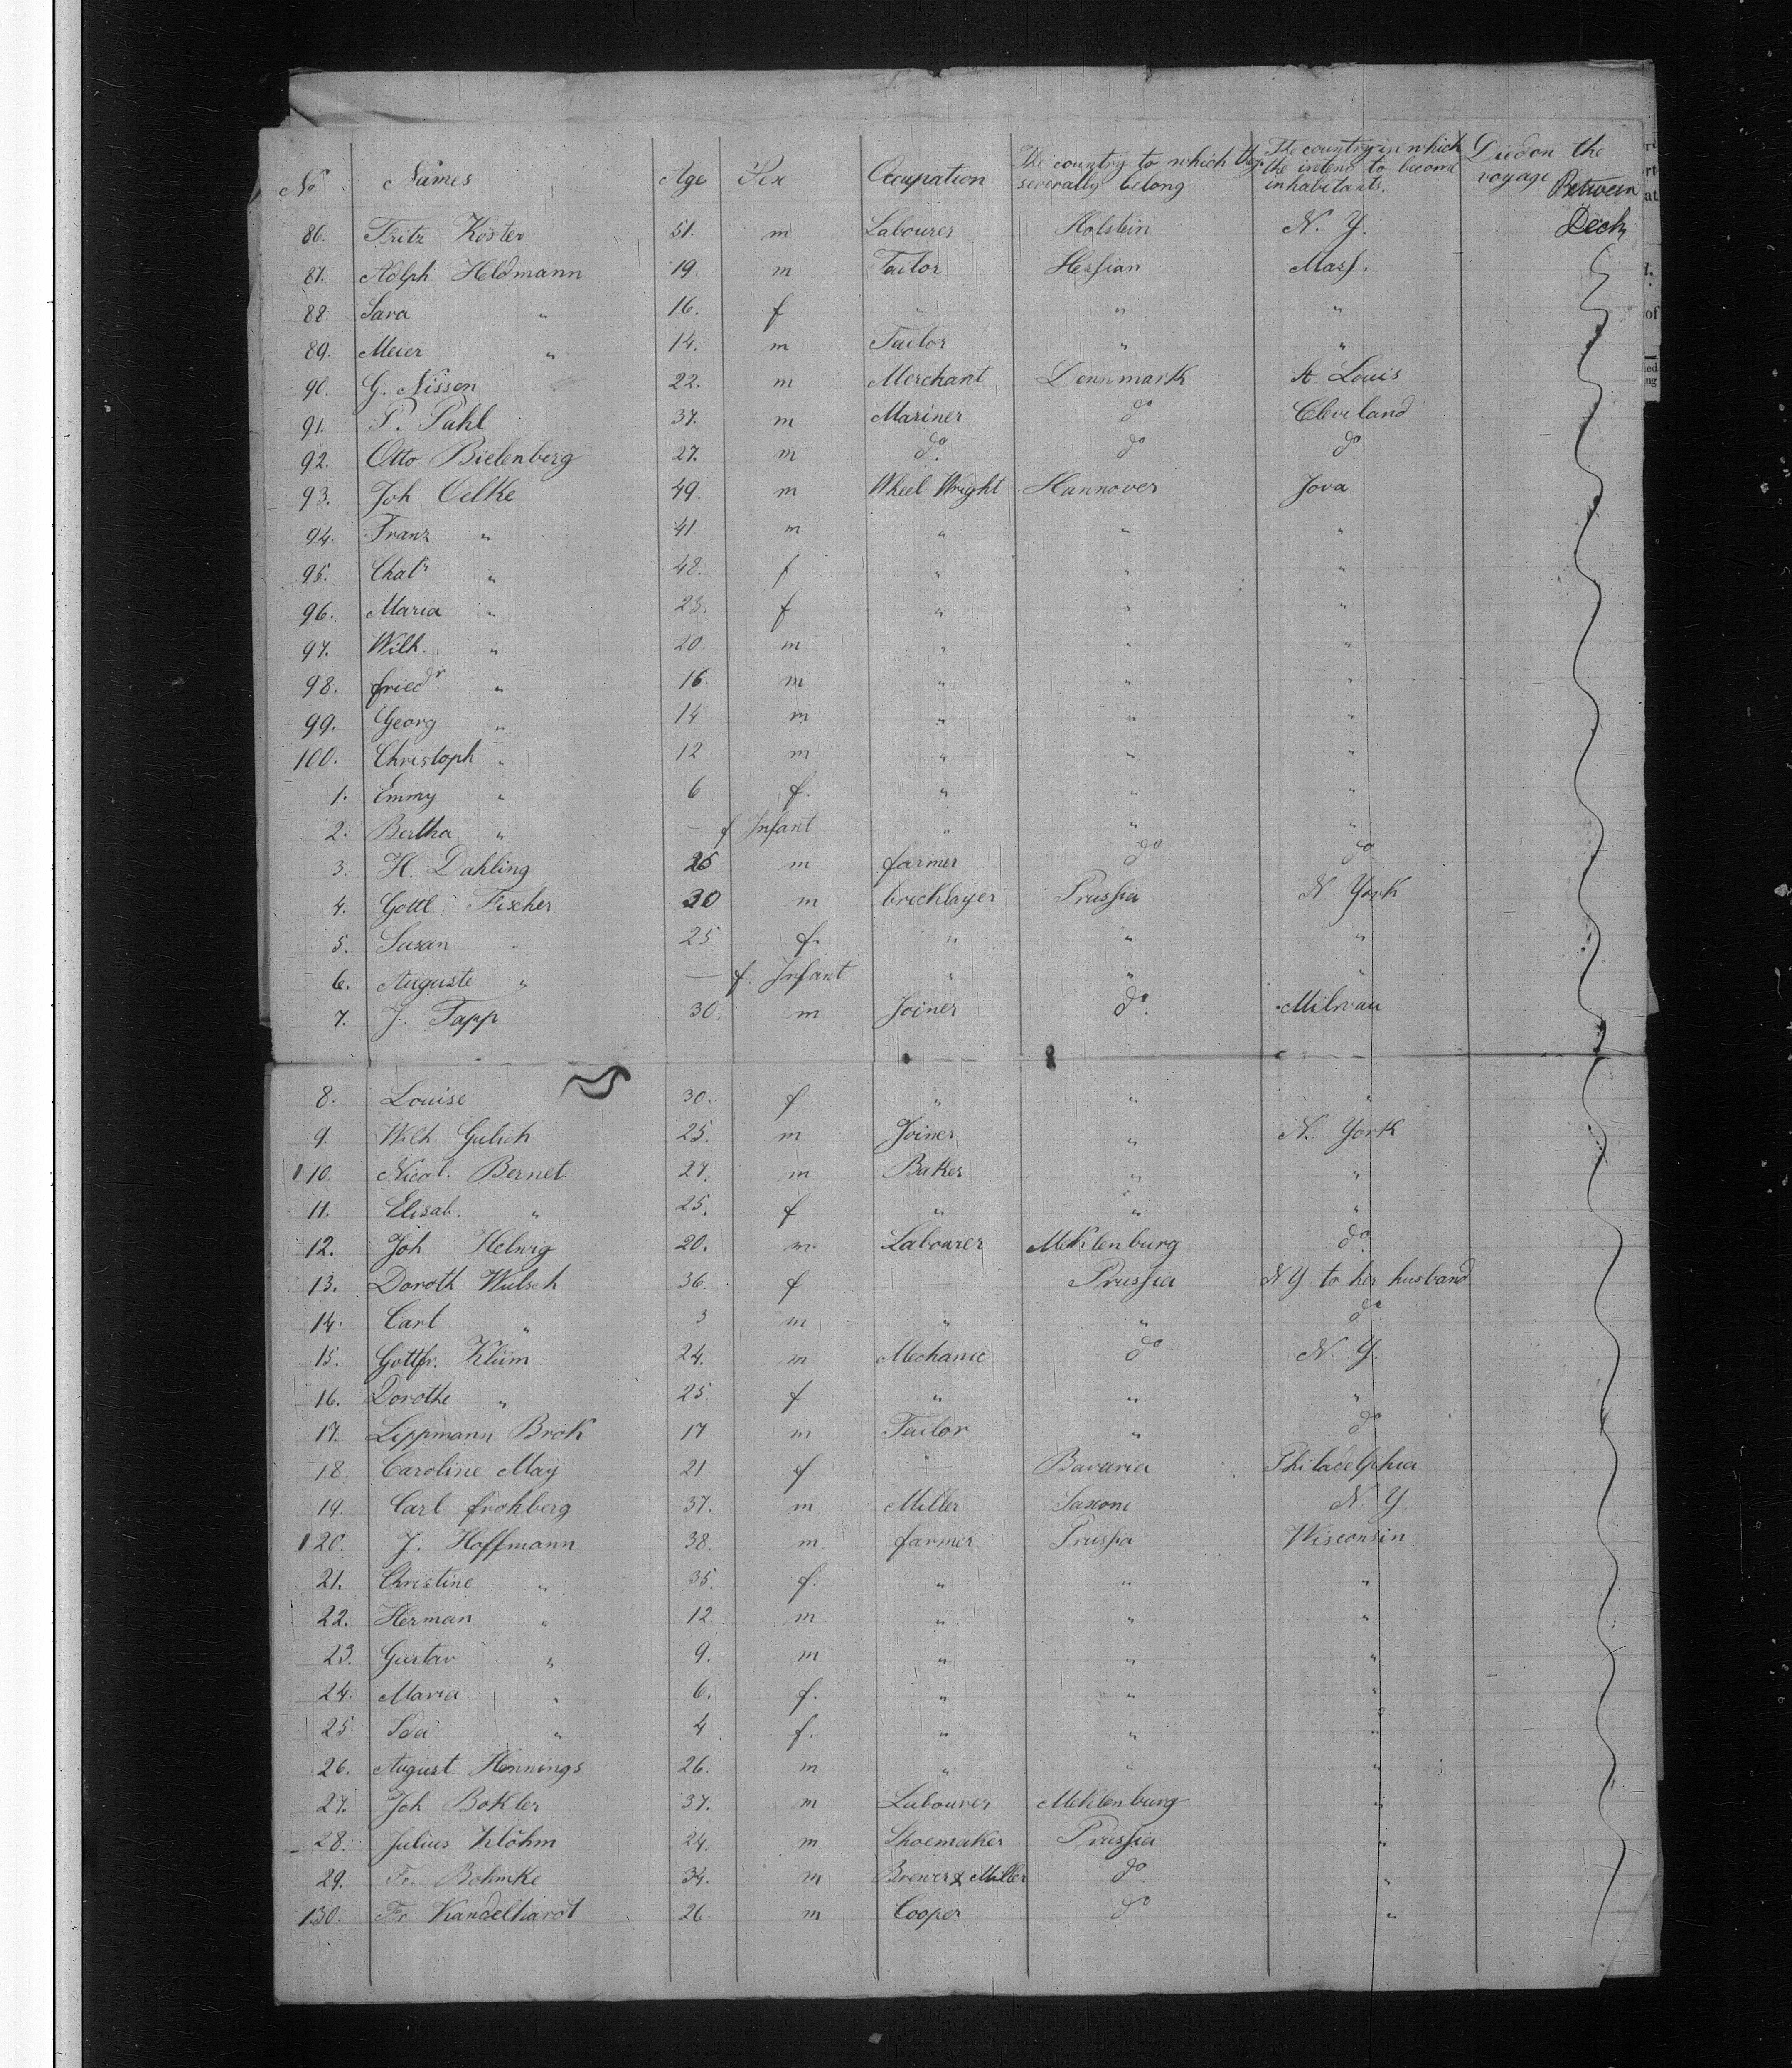 No. Names Age Sex Occupation The country to which they severally belong The country in which the intend to become inhabitants. Died on the voyage Between Deck
86. Fritz Köster 51. m Labourer Holstein N. Y.
87. Adolph Heldmann 19. m Tailor Hessian Mass.
88. Sara " 16. f " " "
89. Meier " 14. m Tailor " "
90. G. Nissen 22. m Merchant Dennmark St. Louis
91. P. Pahl 37. m Mariner do Cleveland
92. Otto Bielenberg 27. m do. do do
93. Joh Oelke 49. m Wheel Wright Hannover Jova
94. Franz " 41 m " " "
95. Chatr " 48. f " " "
96. Maria " 23. f " " "
97. Wilh. " 20. m " " "
98. friedr " 16 m " " "
99. Georg " 14 m " " "
100. Christoph " 12 m " " "
1. Emmy " 6 f. " " "
2. Bertha " — f Infant " " "
3. H. Dahling 25 m farmer do do
4. Gottl. Fischer 30 m bricklayer Prussia N. York
5. Susan " 25 f. " " "
6. Auguste " — f. Infant " " "
7. J. Tapp 30. m Joiner do. Milwau
8. Louise 30. f " " "
9. Wilh. Gulich 25. m Joiner " N. York
110. Nicol. Bernet 27. m Baker " "
11. Elisab. " 25. f " " "
12. Joh Helwig 20. m Labourer Meklenburg do
13. Doroth Wulsch 36. f — Prussia N. Y. to her husband
14. Carl " 3 m " " do
15. Gottfr. Klüm 24. m Mechanic do N. Y.
16. Dorothe " 25. f " " "
17. Lippmann Brok 17 m Tailor " do
18. Caroline May 21 f — Bavaria Philadelphia
19. Carl frohberg 37. m Miller Saxoni N. Y.
120. J. Hoffmann 38. m farmer Prussia Wisconsin
21. Christine " 35. f. " " "
22. Herman " 12 m " " "
23. Gustav " 9. m " " "
24. Maria " 6. f. " " "
25. Ida " 4 f. " " "
26. August Hennings 26. m " " "
27. Joh Bokler 37. m Labourer Meklenburg "
28. Julius Klöhm 24. m Shoemaker Prussia "
29. Fr. Böhmke 34. m Brewer & Miller do "
130. Fr. Kandelhardt 26. m Cooper do "